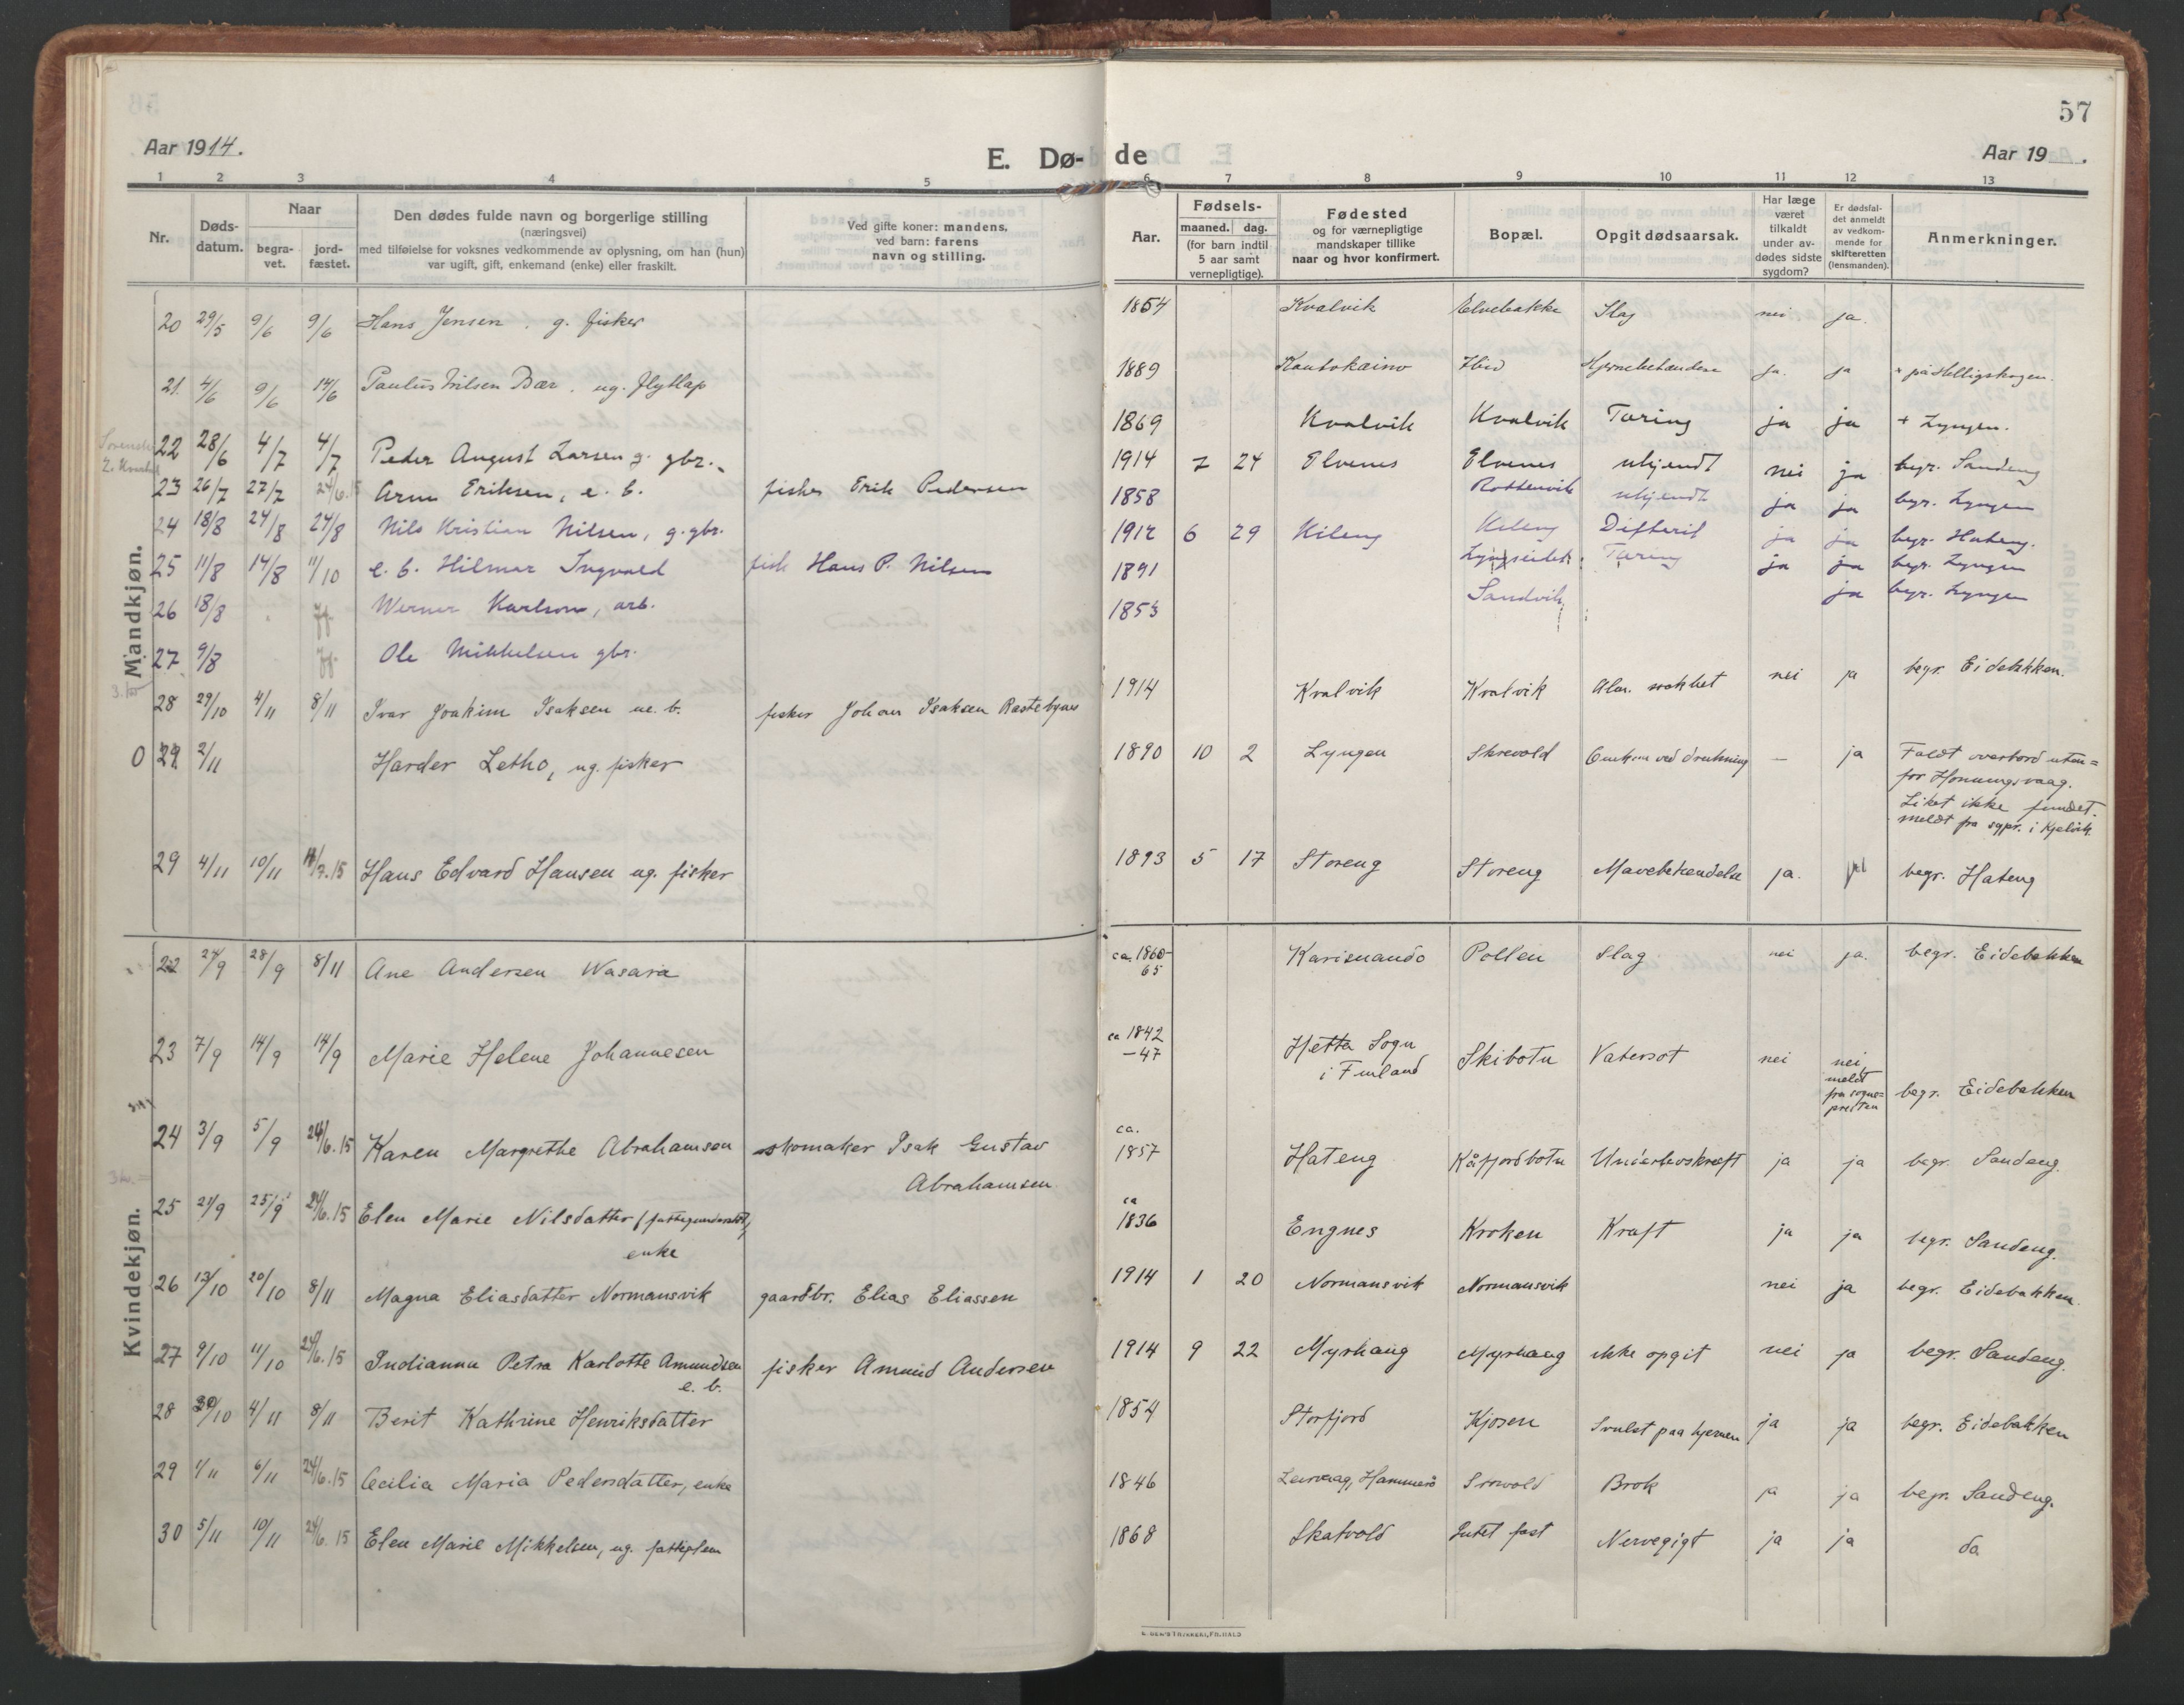 57
Aar 1914.
E. Dø- de
Aar 19 .
1 2 3 4 5 6 7 8 9 10 11 12 13
Nr.
Døds-
datum.
Naar
begra-
vet.
jord-
fæstet.
Den dødes fulde navn og borgerlige stilling
(næringsvei)
med tilføielse for voksnes vedkommende av oplysning, om han (hun)
var ugift, gift, enkemand (enke) eller fraskilt.
Ved gifte koner: mandens,
ved barn: farens
navn og stilling.
Aar.
Fødsels-
maaned. dag.
(for barn indtil
5 aar samt
vernepligtige).
Fødested
og for værnepligtige
mandskaper tillike
naar og hvor konfirmert.
Bopæl.
Opgit dødsaarsak.
Har læge
været
tilkaldt
under av-
dødes sidste
sygdom?
Er dødsfal-
det anmeldt
av vedkom-
mende for
skifteretten
(lensmanden).
Anmerkninger.
Mandkjøn.
20 29/5 9/6 9/6 Hans Jensen, g. fisker 1854 Kvalvik Elvebakke Slag nei ja.
21. 4/6 9/6 14/6 Paulus Nilsen Bær. ug. flytlap 1889 Kautokaino Ibid Hjernebetændelse ja. ja + på Helligskogen.
22 28/6 4/7 4/7 Peder August Larsen g. gbr. 1869 Kvalvik Kvalvik Tæring ja ja + Lyngen.
23 26/7 27/7 24/6.15 Arne Eriksen, e. b. fisker Erik Pedersen 1914 7 24 Elvenes Elvenes ukjendt nei ja begr. Sandeng
24 18/8 24/8 24/8 Nils Kristian Nilsen, g. gbr. 1858 Rottenvik ukjendt ja ja begr. Lyngen
25 11/8 14/8 11/10 e. b. Hilmar Ingvald fisk Hans P. Nilsen 1912 6 29 Kileng Kileng Difterit ja ja begr. Hateng.
26 18/8 Werner Karlson, arb. 1891 Lyngseidet Tæring ja ja begr. Lyngen
27 9/8 Ole Mikkelsen gbr. 1853 Sandvik ja begr. Lyngen
28 29/10 4/11 8/11 Ivar Joakim Isaksen ue. b. fisker Johan Isaksen Rastebynes 1914 Kvalvik Kvalvik Alm. svakhet nei ja begr. Eidebakken.
O 29. 2/11 Harder Letho, ug. fisker 1890 10 2 Lyngen Skrevold Omkom ved drukning — ja Faldt overbord uten=
for Honningsvaag.
Liket ikke fundet.
meldt fra sgpr. i Kjelvik
29 4/11 10/11 11/7.15 Hans Edvard Hansen ug. fisker 1893 5 17 Storeng Storeng Mavebetændelse ja. begr. Hateng
Kvindekjøn.
22 24/9 28/9 8/11 Ane Andersen Wasara ca. 1860-
65 Karisuando Pollen Slag nei ja. begr. Eidebakken
23 7/9 14/9 14/9 Marie Helene Johannesen ca 1842
-47 Hetta Sogn
i Finland Skibotn Vatersot nei nei,
meldt
fra sogne=
presten begr. Eidebakken
24 3/9 5/9 24/6.15 Karen Margrethe Abrahamsen skomaker Isak Gustav
Abrahamsen. ca.
1857 Hateng Kåfjordbotn Underlivskræft ja ja begr. Sandeng.
25 21/9 25/9 24/6.15 Elen Marie Nilsdatter (fattigunderstøt.),
enke ca
1836 Engnes Kroken Kræft ja ja begr. Sandeng.
26 13/10 20/10 8/11 Magna Eliasdatter Normansvik gaardbr. Elias Eliassen 1914 1 20 Normansvik Normansvik nei ja begr. Eidebakken.
27 9/10 11/10 24/6.15 Indianna Petra Karlotte Amundsen
e. b. fisker Amund Andersen 1914 9 22 Myrhaug Myrhaug ikke opgit nei ja begr. Sandeng.
28 30/10 4/11 8/11 Berit Kathrine Henriksdatter 1854 Storfjord Kjosen Svulst paa hjernen ja ja begr. Eidebakken
29 1/11 6/11 24/6.15 Cecilia Maria Pedersdatter, enke 1846 Leirvaag, Hammerø Brok ja ja begr. Sandeng.
30 5/11 10/11 24/6.15 Elen Marie Mikkelsen, ug. fattiglem 1868 Skatvold Intet fast Nervegigt ja ja do